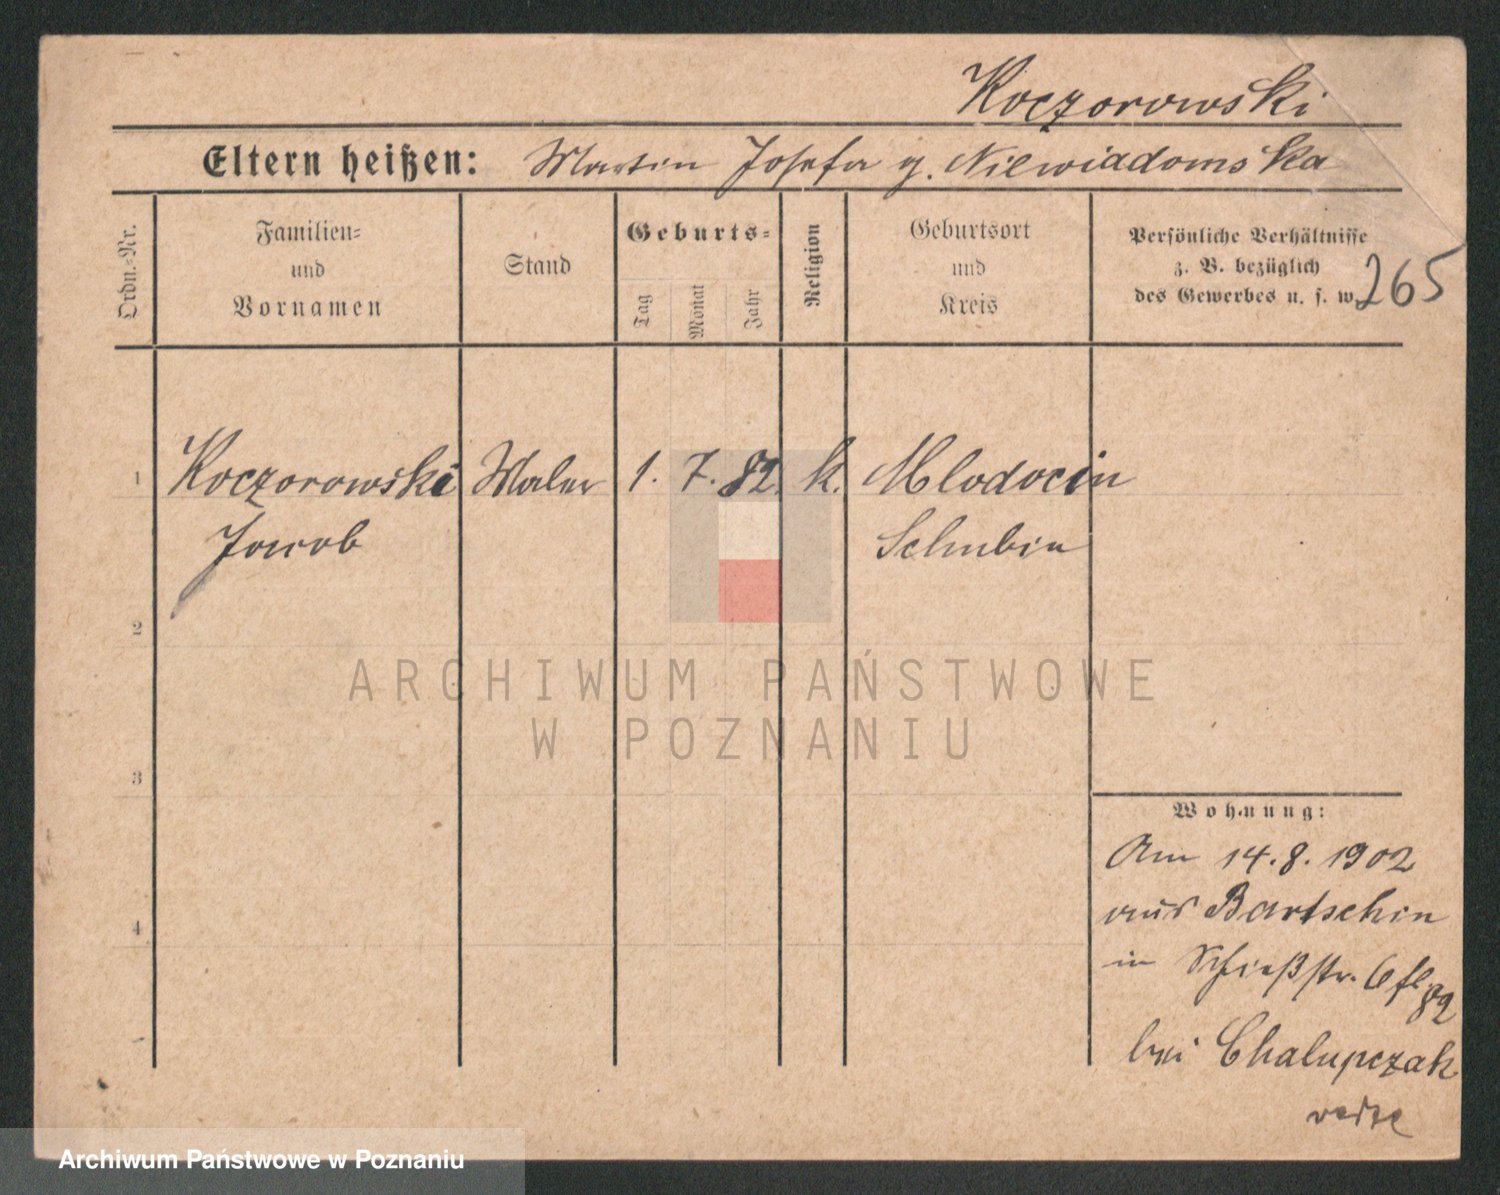 Koczorowski
Eltern heißen: Martin Josefa g. Niewiadomska
Ordn.-Nr.
Familien-
und
Vornamen
Stand
Geburts-
Tag
Monat
Jahr
Religion
Geburtsort
und
Kreis
Persönliche Verhältnisse
z. B. bezüglich
des Gewerbes u. s. w.
265
1 Koczorowski Maler 1. 7. 82. k. Mlodocin
Jacob Schubin
2
ARCHIWUM PAŃSTWOWE
W POZNANIU
3
Wohnung:
Am 14. 8. 1902
aus Bartschin
4
in Schießstr. 6
bei Chalupczak
Archiwum Państwowe w Poznaniu